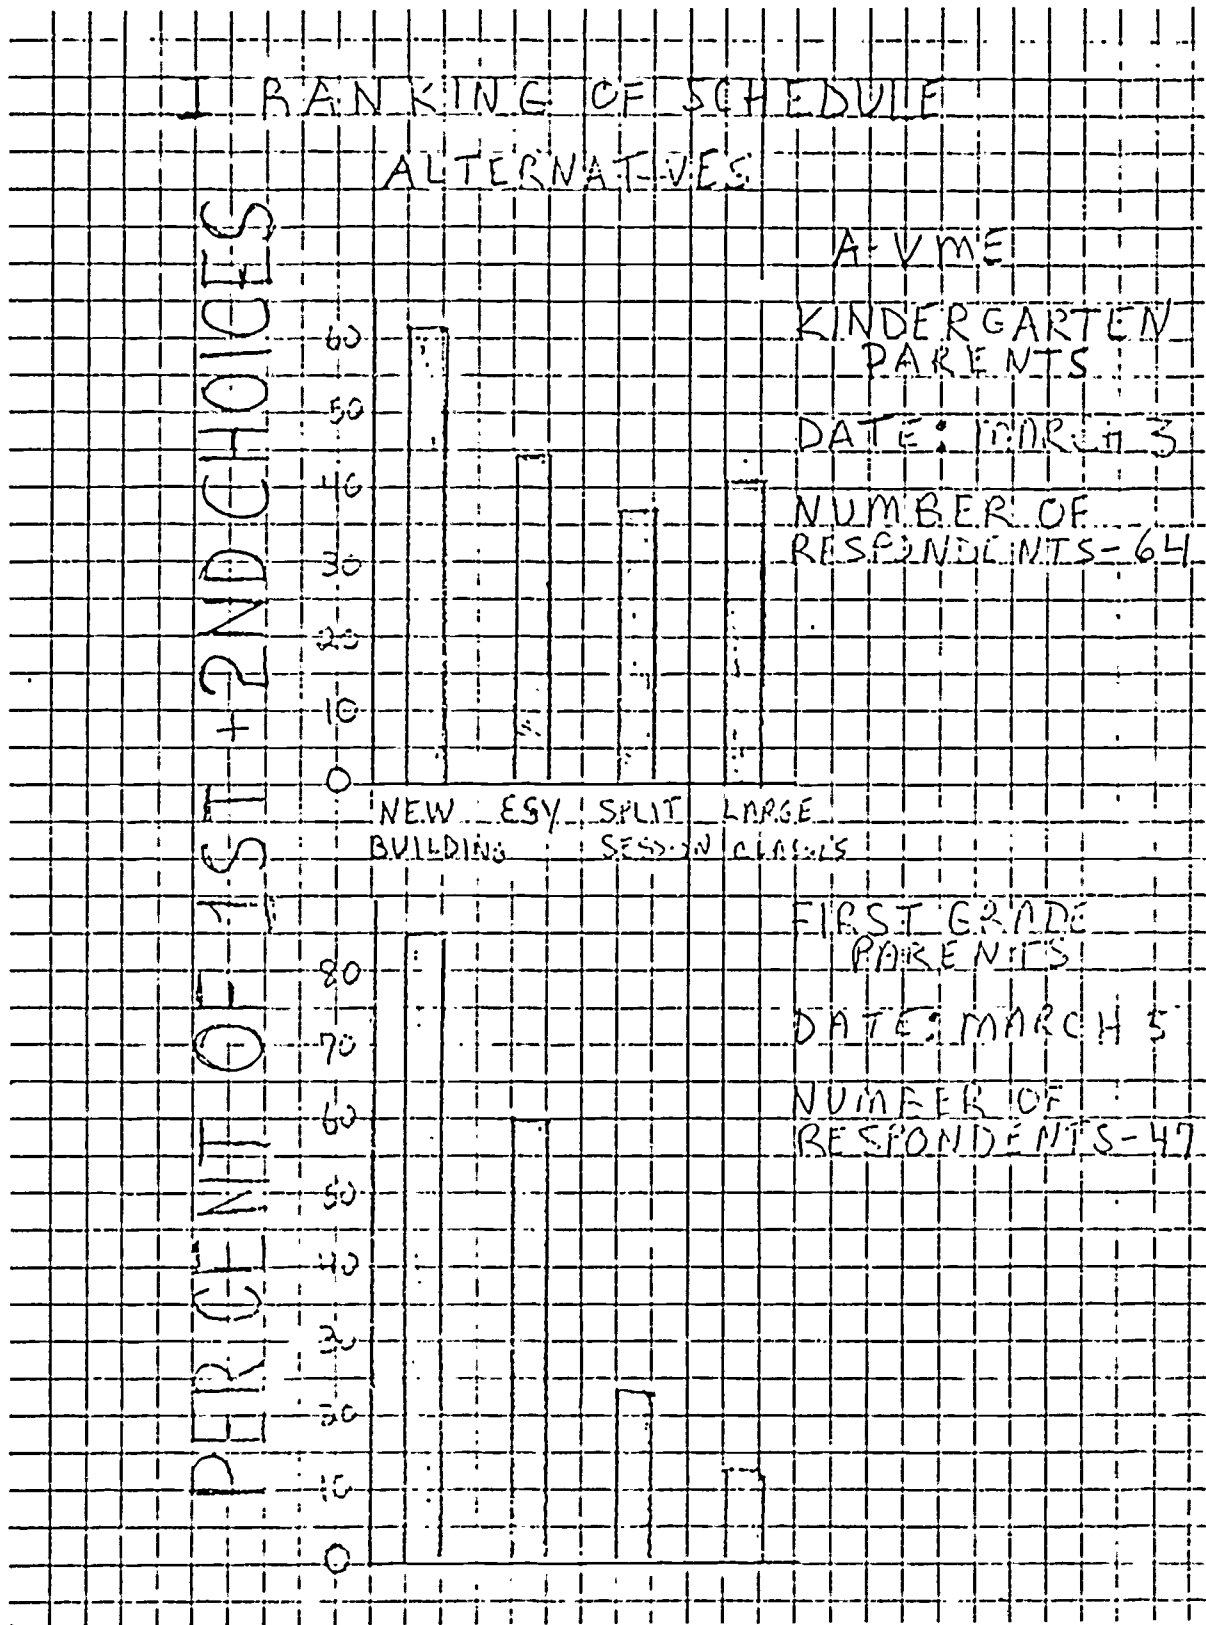 I RANKING OF SCHEDULE
ALTERNATIVES
PERCENT OF 1ST + 2ND CHOICES
A-VME
KINDERGARTEN
PARENTS
DATE: MARCH 3
NUMBER OF
RESPONDENTS-64
60
50
40
30
20
10
0
NEW ESY SPLIT LARGE
BUILDING SESSION CLASSES
FIRST GRADE
PARENTS
DATE: MARCH 5
NUMBER OF
RESPONDENTS-47
80
70
60
50
40
30
20
10
0